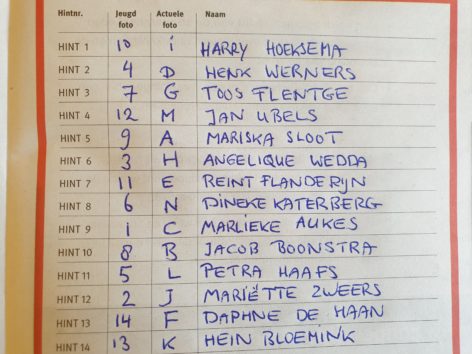 Hintnr. Jeugd foto Actuele foto Naam
HINT 1 10 i HARRY HOEKSEMA
HINT 2 4 D HENK WERNERS
HINT 3 7 G TOOS FLENTGE
HINT 4 12 M JAN UBELS
HINT 5 9 A MARISKA SLOOT
HINT 6 3 H ANGELIQUE WEDDA
HINT 7 11 E REINT FLANDERIJN
HINT 8 6 N DINEKE KATERBERG
HINT 9 1 C MARLIEKE AUKES
HINT 10 8 B JACOB BOONSTRA
HINT 11 5 L PETRA HAAFS
HINT 12 2 J MARIËTTE ZWEERS
HINT 13 14 F DAPHNE DE HAAN
HINT 14 13 K HEIN BLOEMINK